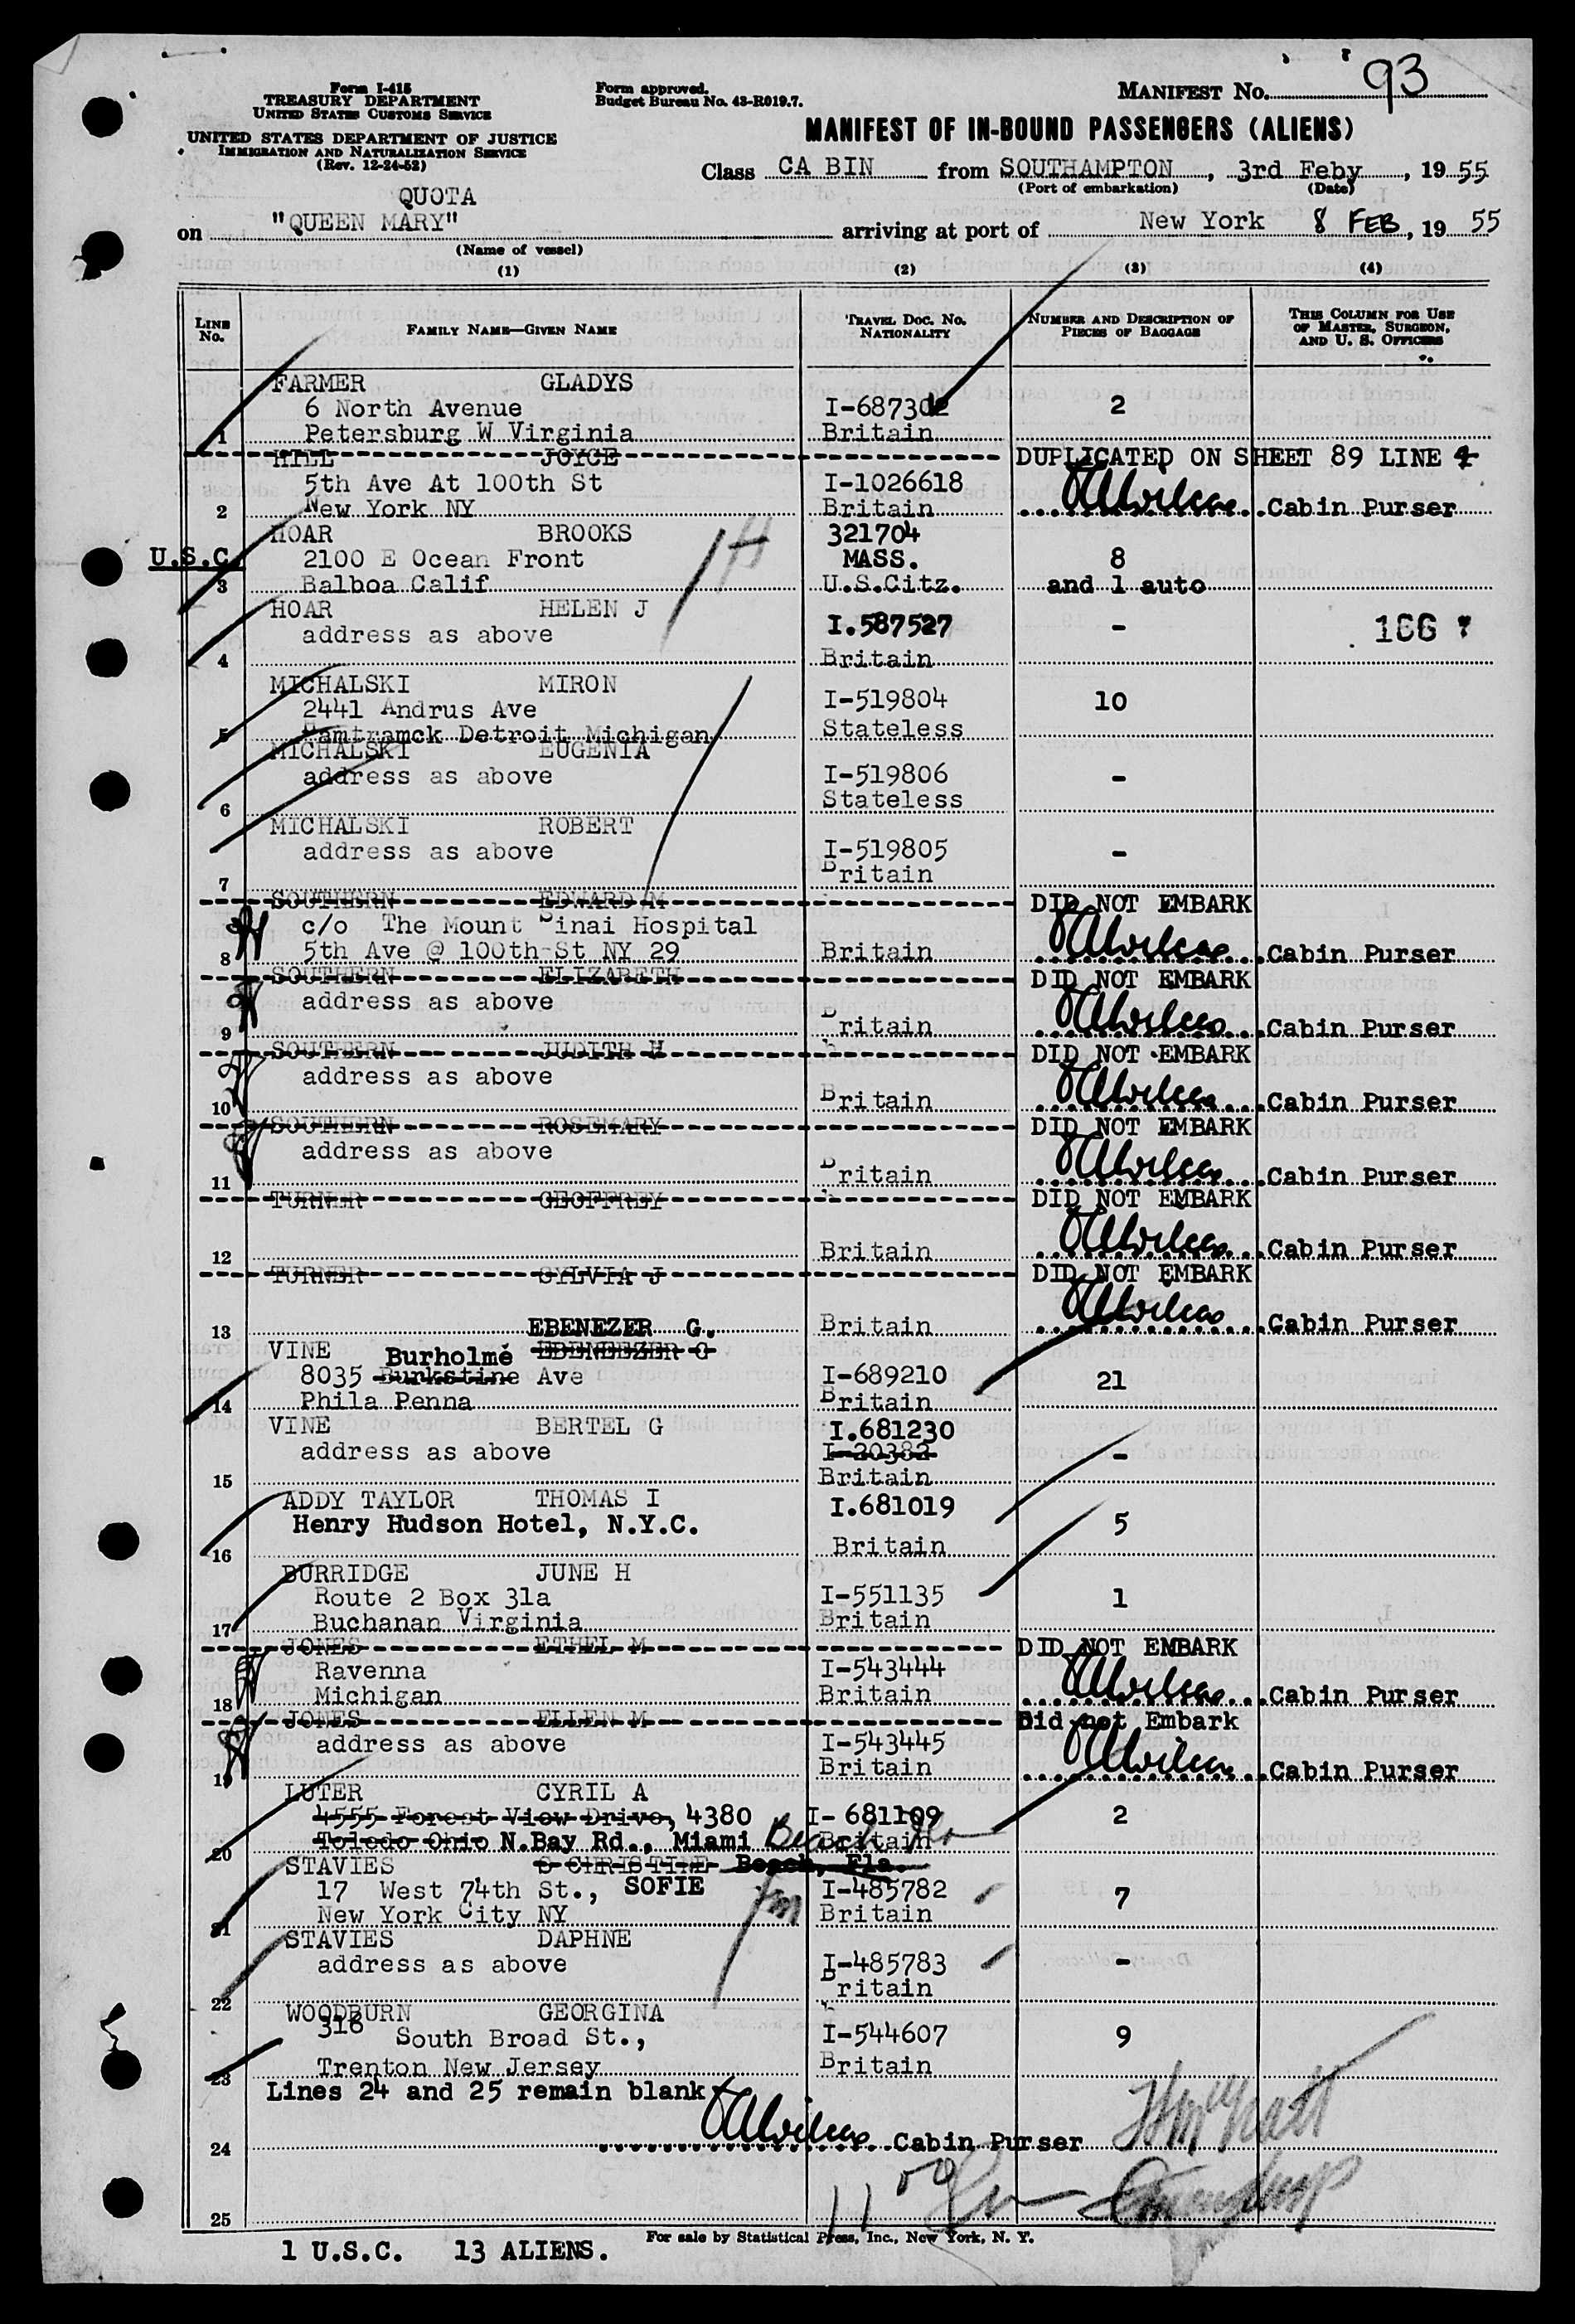 93
Form I-415
TREASURY DEPARTMENT
UNITED STATES CUSTOMS SERVICE
UNITED STATES DEPARTMENT OF JUSTICE
IMMIGRATION AND NATURALIZATION SERVICE
(Rev. 12-24-52)
Form approved.
Budget Bureau No. 43-R019.7.
MANIFEST NO.
MANIFEST OF IN-BOUND PASSENGERS (ALIENS)
Class CA BIN from SOUTHAMPTON, 3rd Feby, 19 55
(Port of embarkation) (Date)
QUOTA
on "QUEEN MARY" arriving at port of New York 8 FEB, 19 55
(Name of vessel)
(1) (2) (3) (4)
LINE No. FAMILY NAME—GIVEN NAME TRAVEL DOC. NO. NATIONALITY NUMBER AND DESCRIPTION OF PIECES OF BAGGAGE THIS COLUMN FOR USE OF MASTER, SURGEON, AND U. S. OFFICERS
FARMER GLADYS
6 North Avenue I-687302 2
1 Petersburg W Virginia Britain
HILL JOYCE DUPLICATED ON SHEET 89 LINE 4
5th Ave At 100th St I-1026618
2 New York NY Britain Cabin Purser
HOAR BROOKS 321704
U.S.C. 2100 E Ocean Front MASS. 8
3 Balboa Calif U.S.Citz. and 1 auto
HOAR HELEN J I.587527
address as above -
4 Britain
MICHALSKI MIRON I-519804 10
2441 Andrus Ave
5 Hamtramck Detroit Michigan Stateless
MICHALSKI EUGENIA
address as above I-519806 -
6 Stateless
MICHALSKI ROBERT
address as above I-519805 -
7 Britain
SOUTHERN EDWARD M DID NOT EMBARK
c/o The Mount Sinai Hospital
8 5th Ave @ 100th St NY 29 Britain Cabin Purser
SOUTHERN ELIZABETH DID NOT EMBARK
address as above
9 Britain Cabin Purser
SOUTHERN JUDITH H DID NOT EMBARK
address as above
10 Britain Cabin Purser
SOUTHERN ROSEMARY DID NOT EMBARK
address as above
11 Britain Cabin Purser
TURNER GEOFFREY DID NOT EMBARK
12 Britain Cabin Purser
TURNER SYLVIA J DID NOT EMBARK
13 EBENEZER G. Britain Cabin Purser
VINE EBENEEZER G
Burholme
8035 Burkstine Ave I-689210 21
14 Phila Penna Britain
VINE BERTEL G I.681230
address as above I-20382 -
15 Britain
ADDY TAYLOR THOMAS I I.681019
Henry Hudson Hotel, N.Y.C. 5
16 Britain
BURRIDGE JUNE H
Route 2 Box 31a I-551135 1
17 Buchanan Virginia Britain
JONES ETHEL M DID NOT EMBARK
Ravenna I-543444
18 Michigan Britain Cabin Purser
JONES ELLEN M Did not Embark
address as above I-543445
19 Britain Cabin Purser
LUTER CYRIL A
4555 Forest View Drive, 4380 I- 681109 2
20 Toledo Ohio N.Bay Rd., Miami Beach Britain
STAVIES S CHRISTINE Beach, Fla.
17 West 74th St., SOFIE I-485782 7
21 New York City NY Britain
STAVIES DAPHNE
address as above I-485783 -
22 Britain
WOODBURN GEORGINA
316 South Broad St., I-544607 9
23 Trenton New Jersey Britain
Lines 24 and 25 remain blank
24 Cabin Purser
25
For sale by Statistical Press, Inc., New York, N. Y.
1 U.S.C. 13 ALIENS.